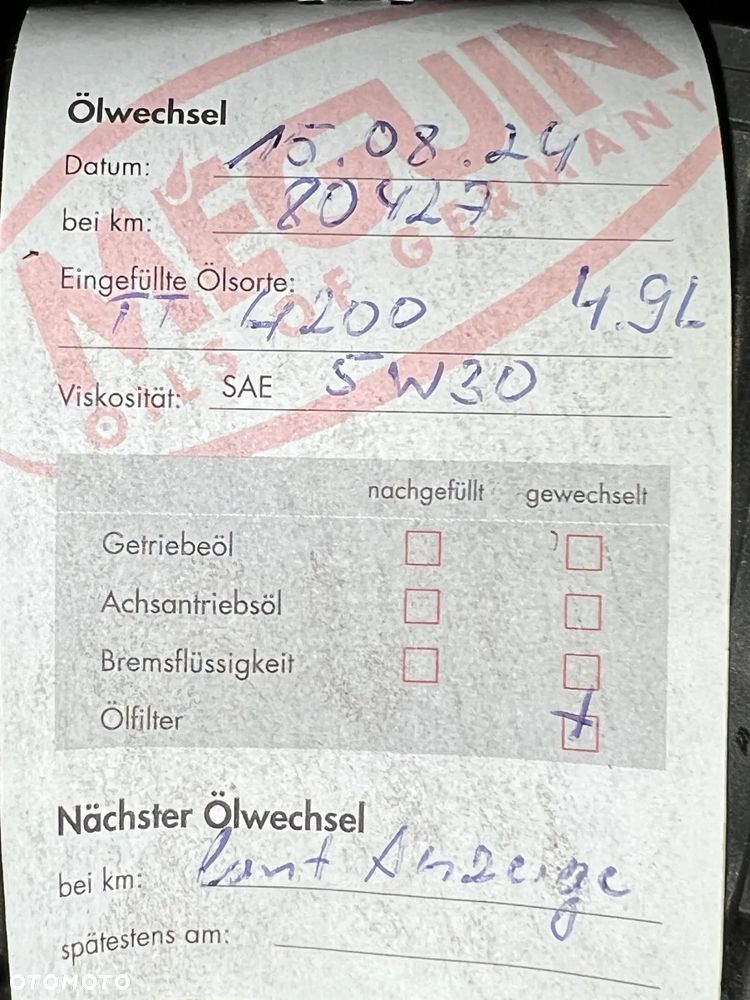 MEGUIN
OILS OF GERMANY
Ölwechsel
Datum: 15.08.24
bei km: 80427
Eingefüllte Ölsorte:
TT 4200 4.9L
Viskosität: SAE 5W30
nachgefüllt gewechselt
Getriebeöl
Achsantriebsöl
Bremsflüssigkeit
Ölfilter +
Nächster Ölwechsel
bei km: laut Anzeige
spätestens am:
OTOMOTO